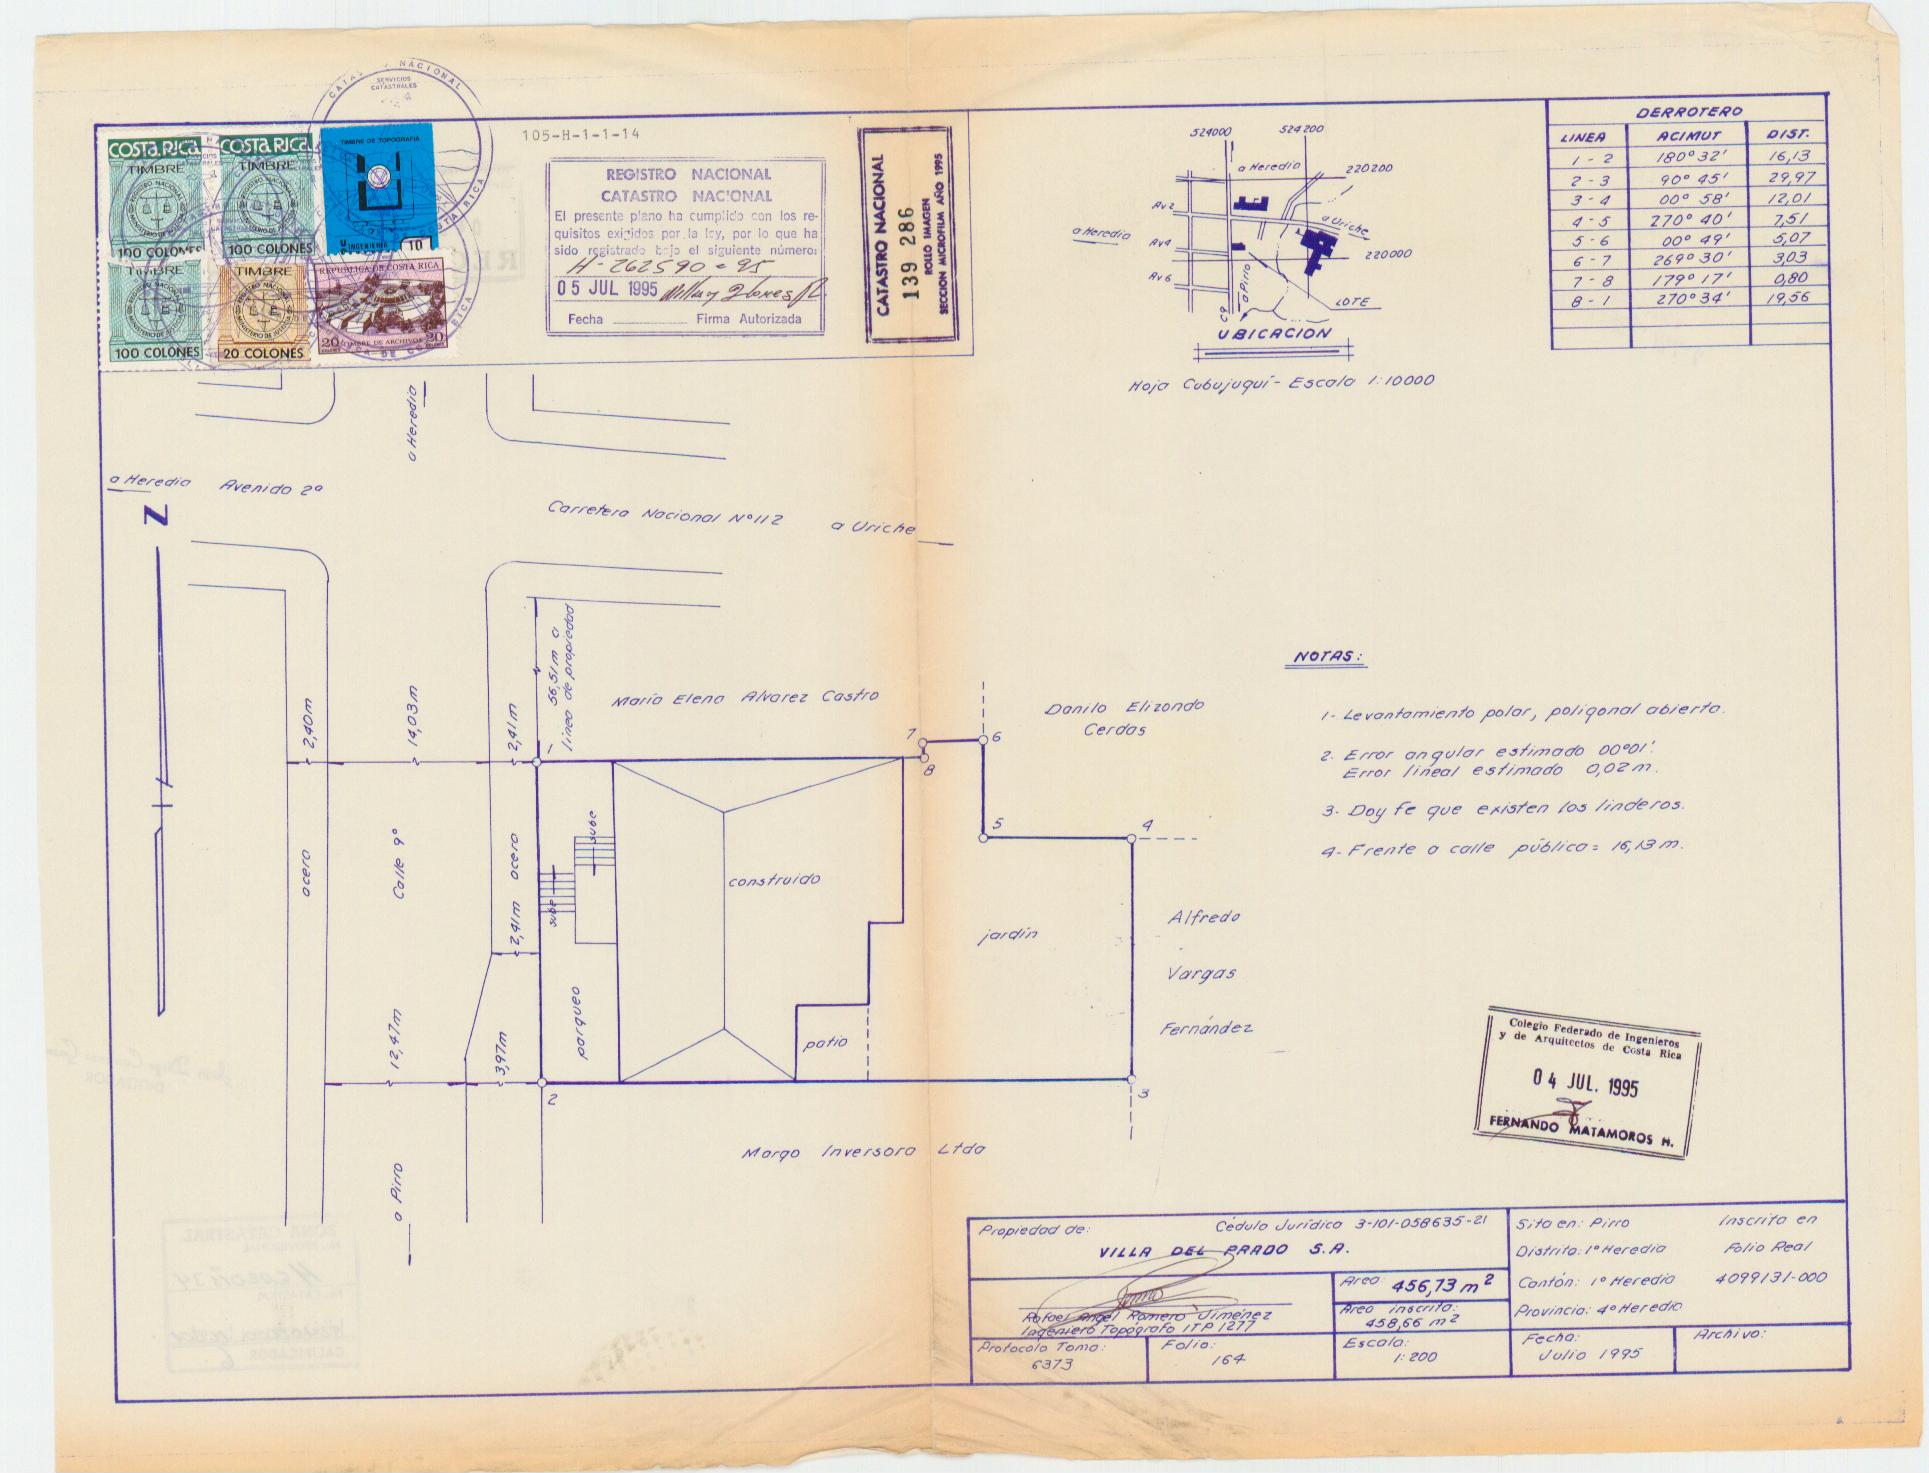 CATASTRO NACIONAL
SERVICIOS
CATASTRALES
COSTA RICA
TIMBRE
100 COLONES
COSTA RICA
TIMBRE
100 COLONES
TIMBRE DE TOPOGRAFIA
INGENIERIA
10
TIMBRE
100 COLONES
TIMBRE
20 COLONES
REPUBLICA DE COSTA RICA
20 TIMBRE DE ARCHIVOS 20
105-H-1-1-14
REGISTRO NACIONAL
CATASTRO NACIONAL
El presente plano ha cumplido con los re-
quisitos exigidos por la ley, por lo que ha
sido registrado bajo el siguiente número:
H-262590-95
05 JUL 1995
Fecha Firma Autorizada
CATASTRO NACIONAL
139 286
ROLLO IMAGEN
SECCION MICROFILM AÑO 1995
524000 524200
a Heredia
220200
Av 2
a Uriche
a Heredia
Av 4
220000
Av 6
a Pirro
C9
LOTE
UBICACION
Hoja Cubujuquí - Escala 1:10000
DERROTERO
LINEA ACIMUT DIST.
1 - 2 180° 32' 16,13
2 - 3 90° 45' 29,97
3 - 4 00° 58' 12,01
4 - 5 270° 40' 7,51
5 - 6 00° 49' 5,07
6 - 7 269° 30' 3,03
7 - 8 179° 17' 0,80
8 - 1 270° 34' 19,56
a Heredia
a Heredia Avenida 2º
Carretera Nacional Nº 112 a Uriche
N
2,40m
14,03m
2,41m
56,51m a
línea de propiedad
María Elena Alvarez Castro
Danilo Elizondo
Cerdas
1
7
6
8
5
4
acera
Calle 9º
2,41m acera
sube
sube
construido
jardín
Alfredo
Vargas
Fernández
parqueo
patio
12,47m
3,97m
2
3
a Pirro
Margo Inversora Ltda
NOTAS:
1- Levantamiento polar, poligonal abierta.
2. Error angular estimado 00°01'.
Error lineal estimado 0,02 m.
3- Doy fe que existen los linderos.
4- Frente a calle pública = 16,13 m.
Colegio Federado de Ingenieros
y de Arquitectos de Costa Rica
04 JUL. 1995
FERNANDO MATAMOROS H.
Propiedad de: Cédula Jurídica 3-101-058635-21
VILLA DEL PRADO S.A.
Rafael Angel Romero Jiménez
Ingeniero Topógrafo ITP 1277
Area: 456,73 m²
Area inscrita:
458,66 m²
Protocolo Tomo:
6373
Folio:
164
Escala:
1:200
Sita en: Pirro
Distrito: 1º Heredia
Cantón: 1º Heredia
Provincia: 4º Heredia
Inscrita en
Folio Real
4099131-000
Fecha:
Julio 1995
Archivo: